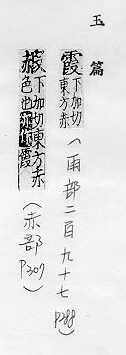 玉篇
霞下加切東方赤(雨部二百九十七 P288)
赮下加切東方赤色也亦作霞(赤部 P307)